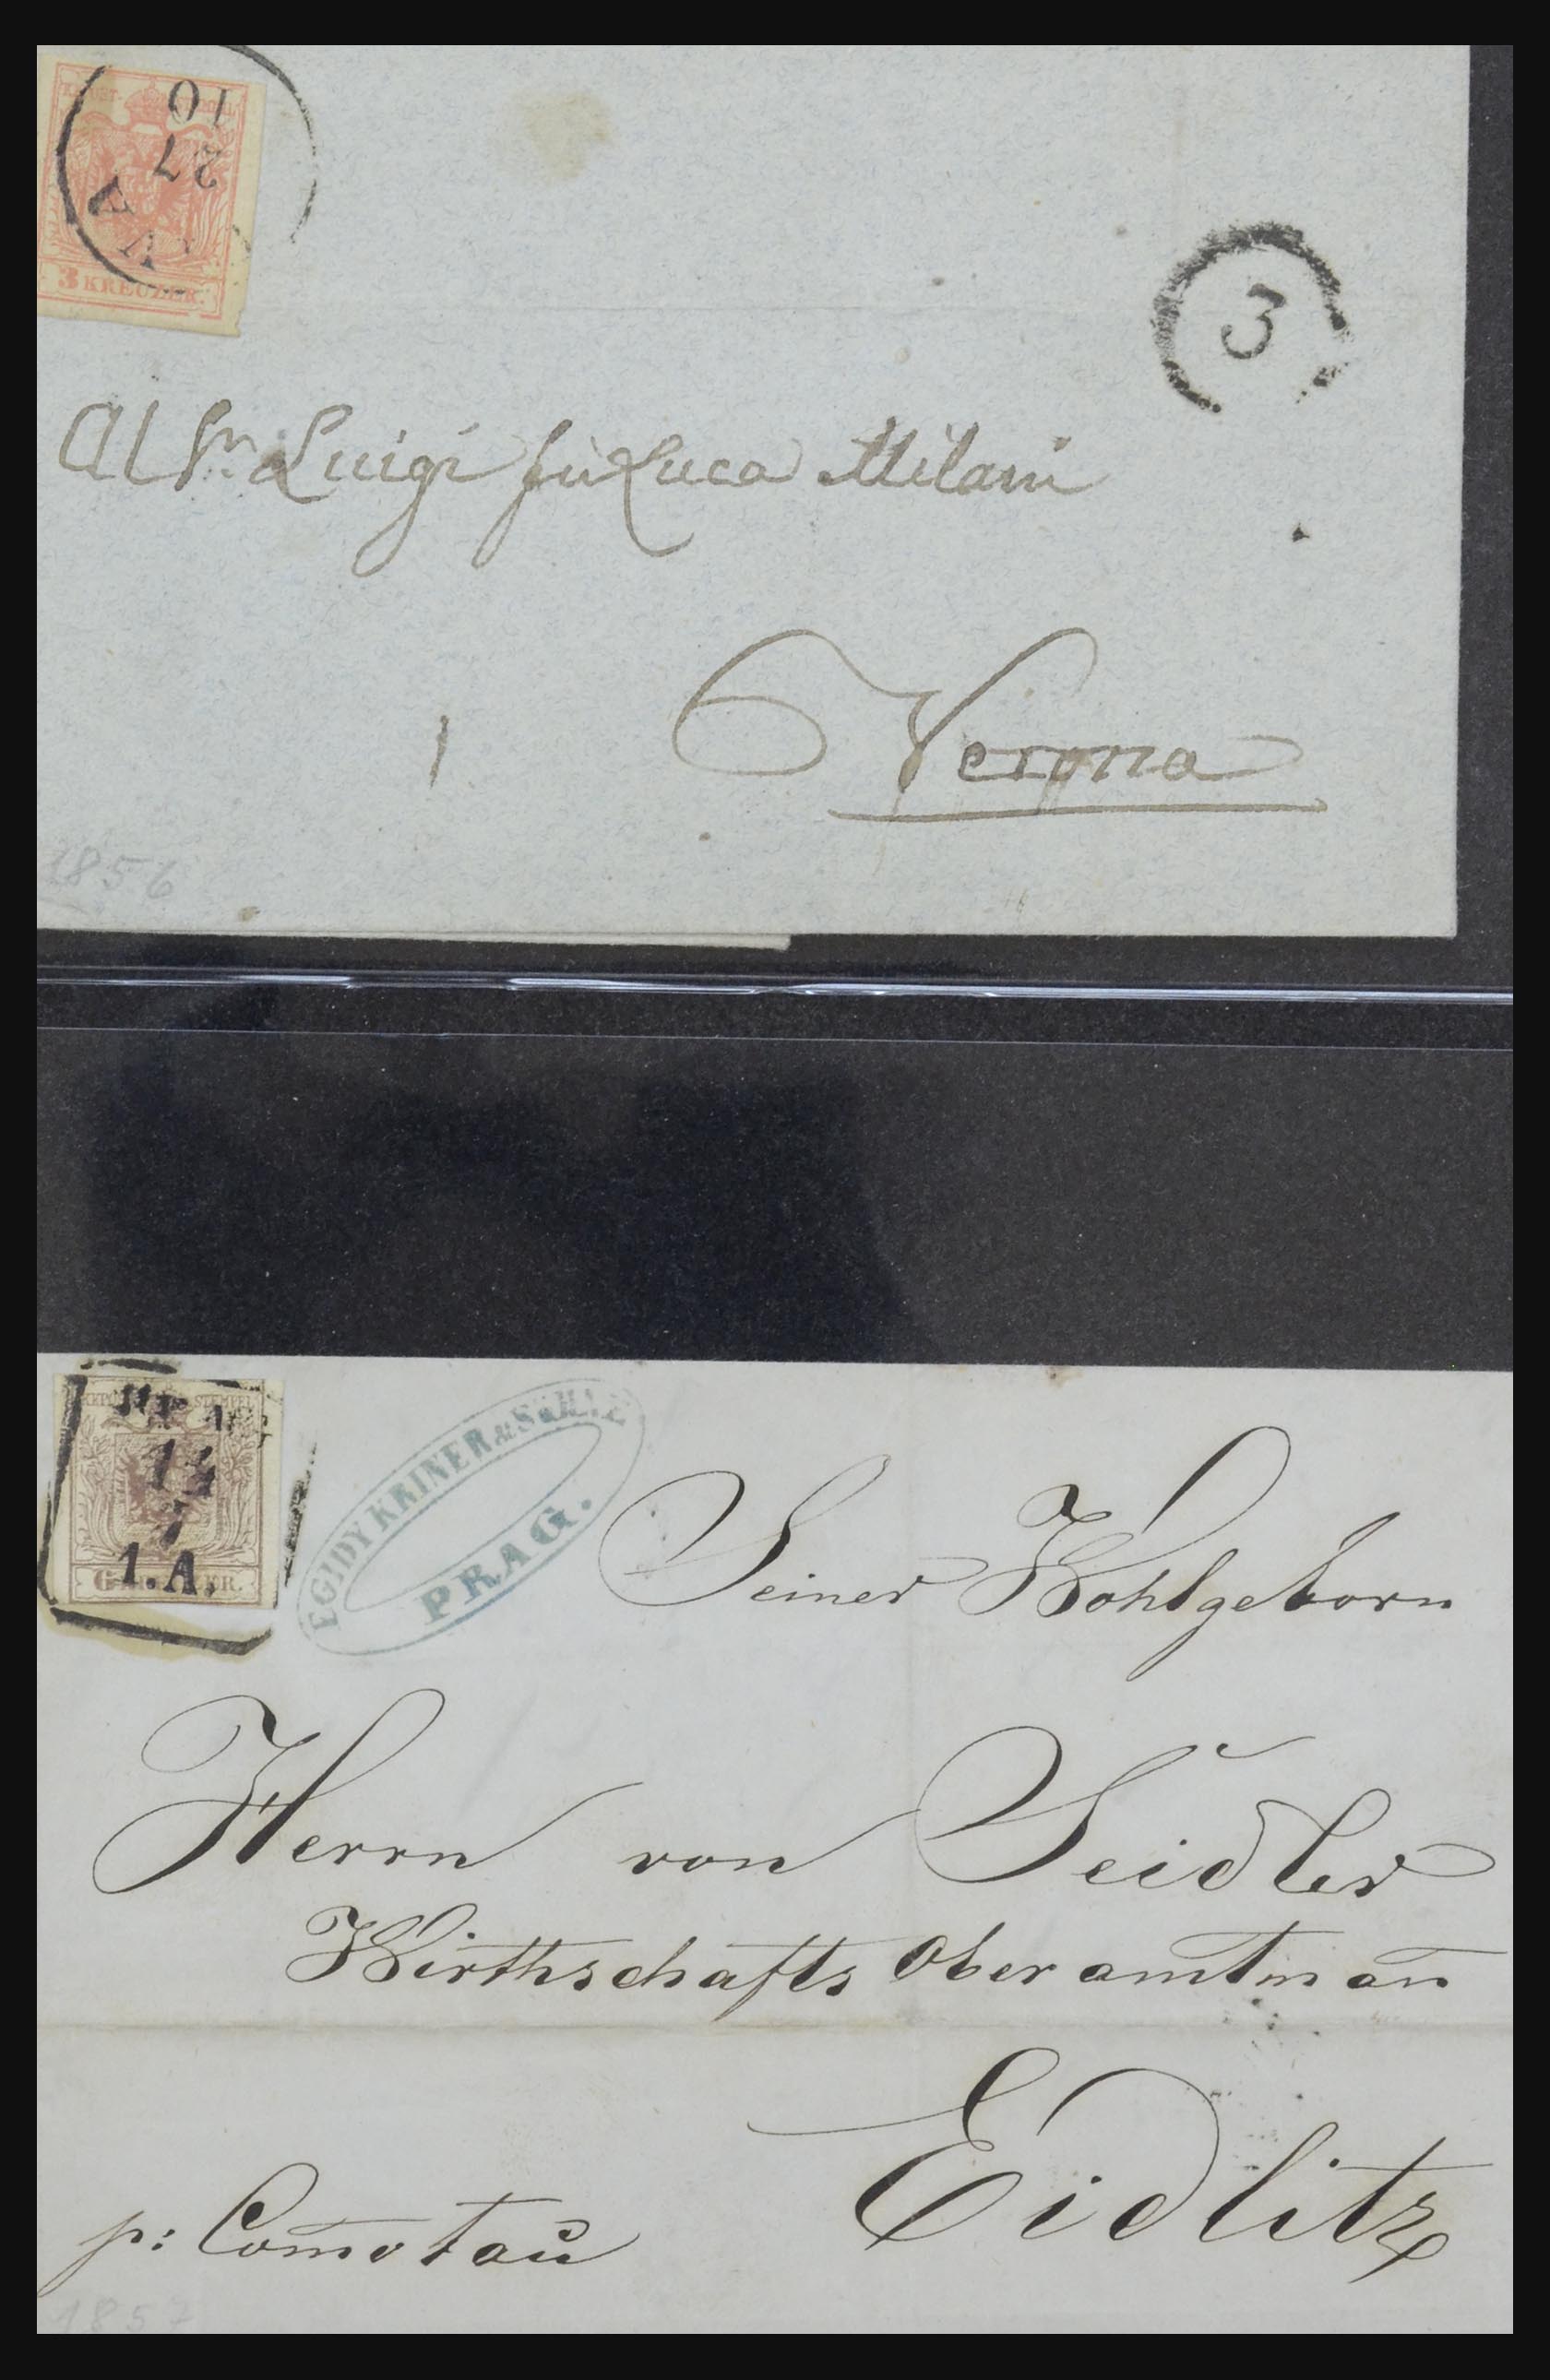 10
27
3 KREUZER.
3
Al Sr. Luigi fu Luca Milani
Verona
1
1856
STEMPEL
1.A.
EGIDY KRINER & SÖHNE
PRAG.
Seiner Wohlgeborn
Herrn von Seidler
Wirthschafts Oberamtmañ
Eidlitz
p: Com̃otaŭ
1857